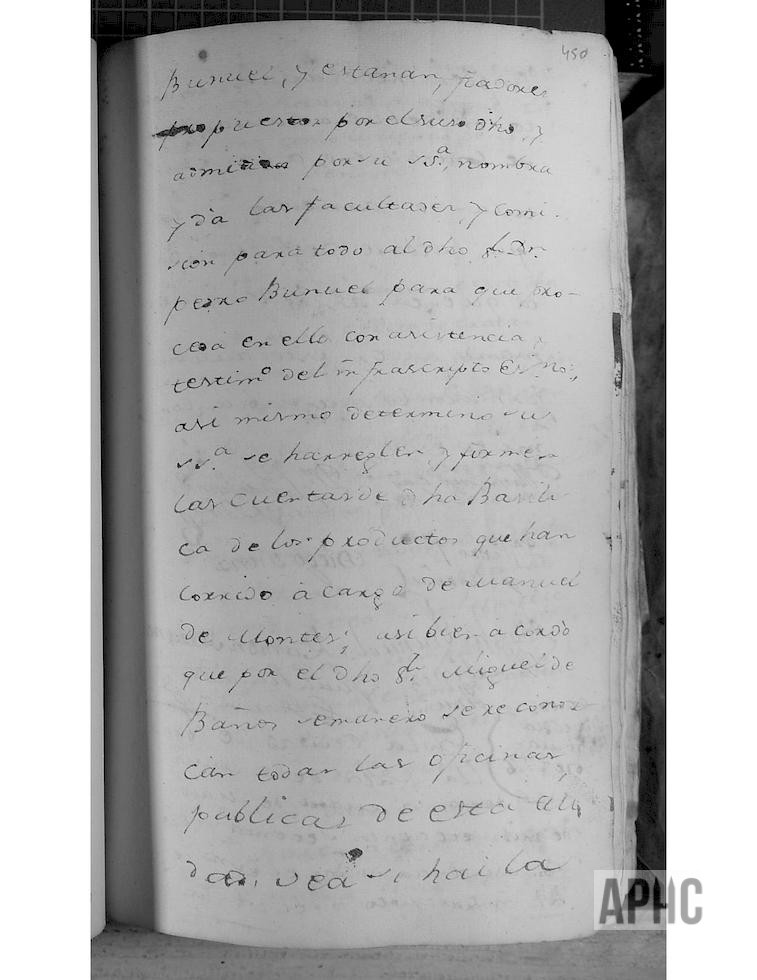 450
Buñuel, y estanan, fiadores
propuestos por el suso dho, y
admitidos por su sSª, nombra
y dà las facultades, y comi-
sion para todo al dho Sr. Dn.
pedro Buñuel para que pro-
ceda en ello con asistencia y
testimº del infrascripto Esno.,
asi mismo determinò su
sSª se harreglen y formen
las cuentas de dha Basili
ca de los productos que han
corrido à cargo de Manuel
de Montes; asi bien acordò
que por el dho Sr. Miguel de
Baños semanero se reconoz
can todas las oficinas,
publicas de esta ciu
dad, vea si hai la
APHC